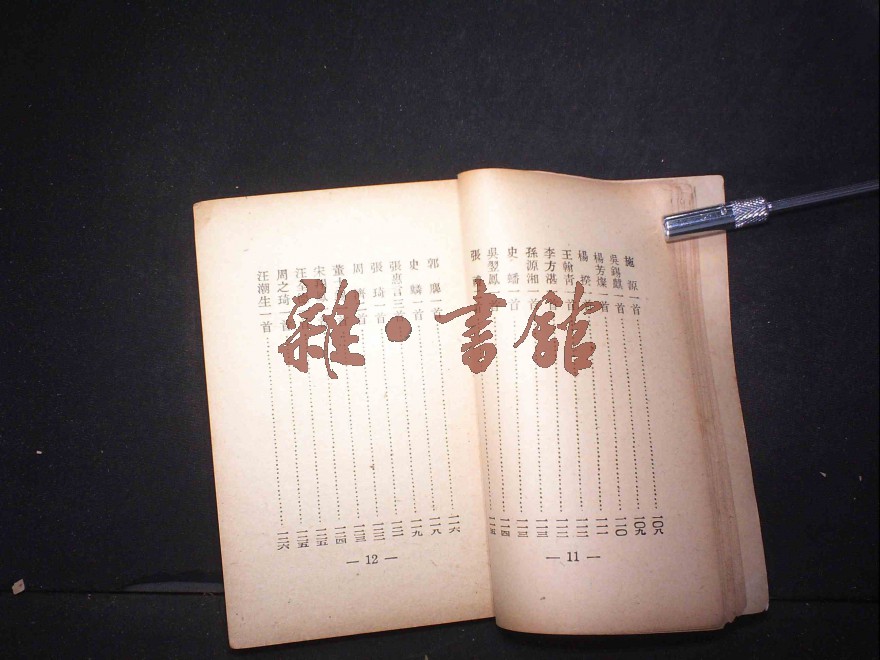 施源一首……一〇八
吳錫麒一首……一〇九
楊芳燦一首……一一〇
楊揆一首……一一一
王翰青一首……一一二
李方湛一首……一一二
孫源湘一首……一一三
史蟠一首……一一三
吳翌鳳 首……一一四
張……一一五
— 11 —
郭麐一首……一一六
史麟一首……一一八
張惠言三首……一一九
張琦一首……一二一
周 一首……一二二
董……一二三
宋……一二四
汪……一二五
周之琦 首……一二五
汪潮生一首……一二六
— 12 —
雜·書館